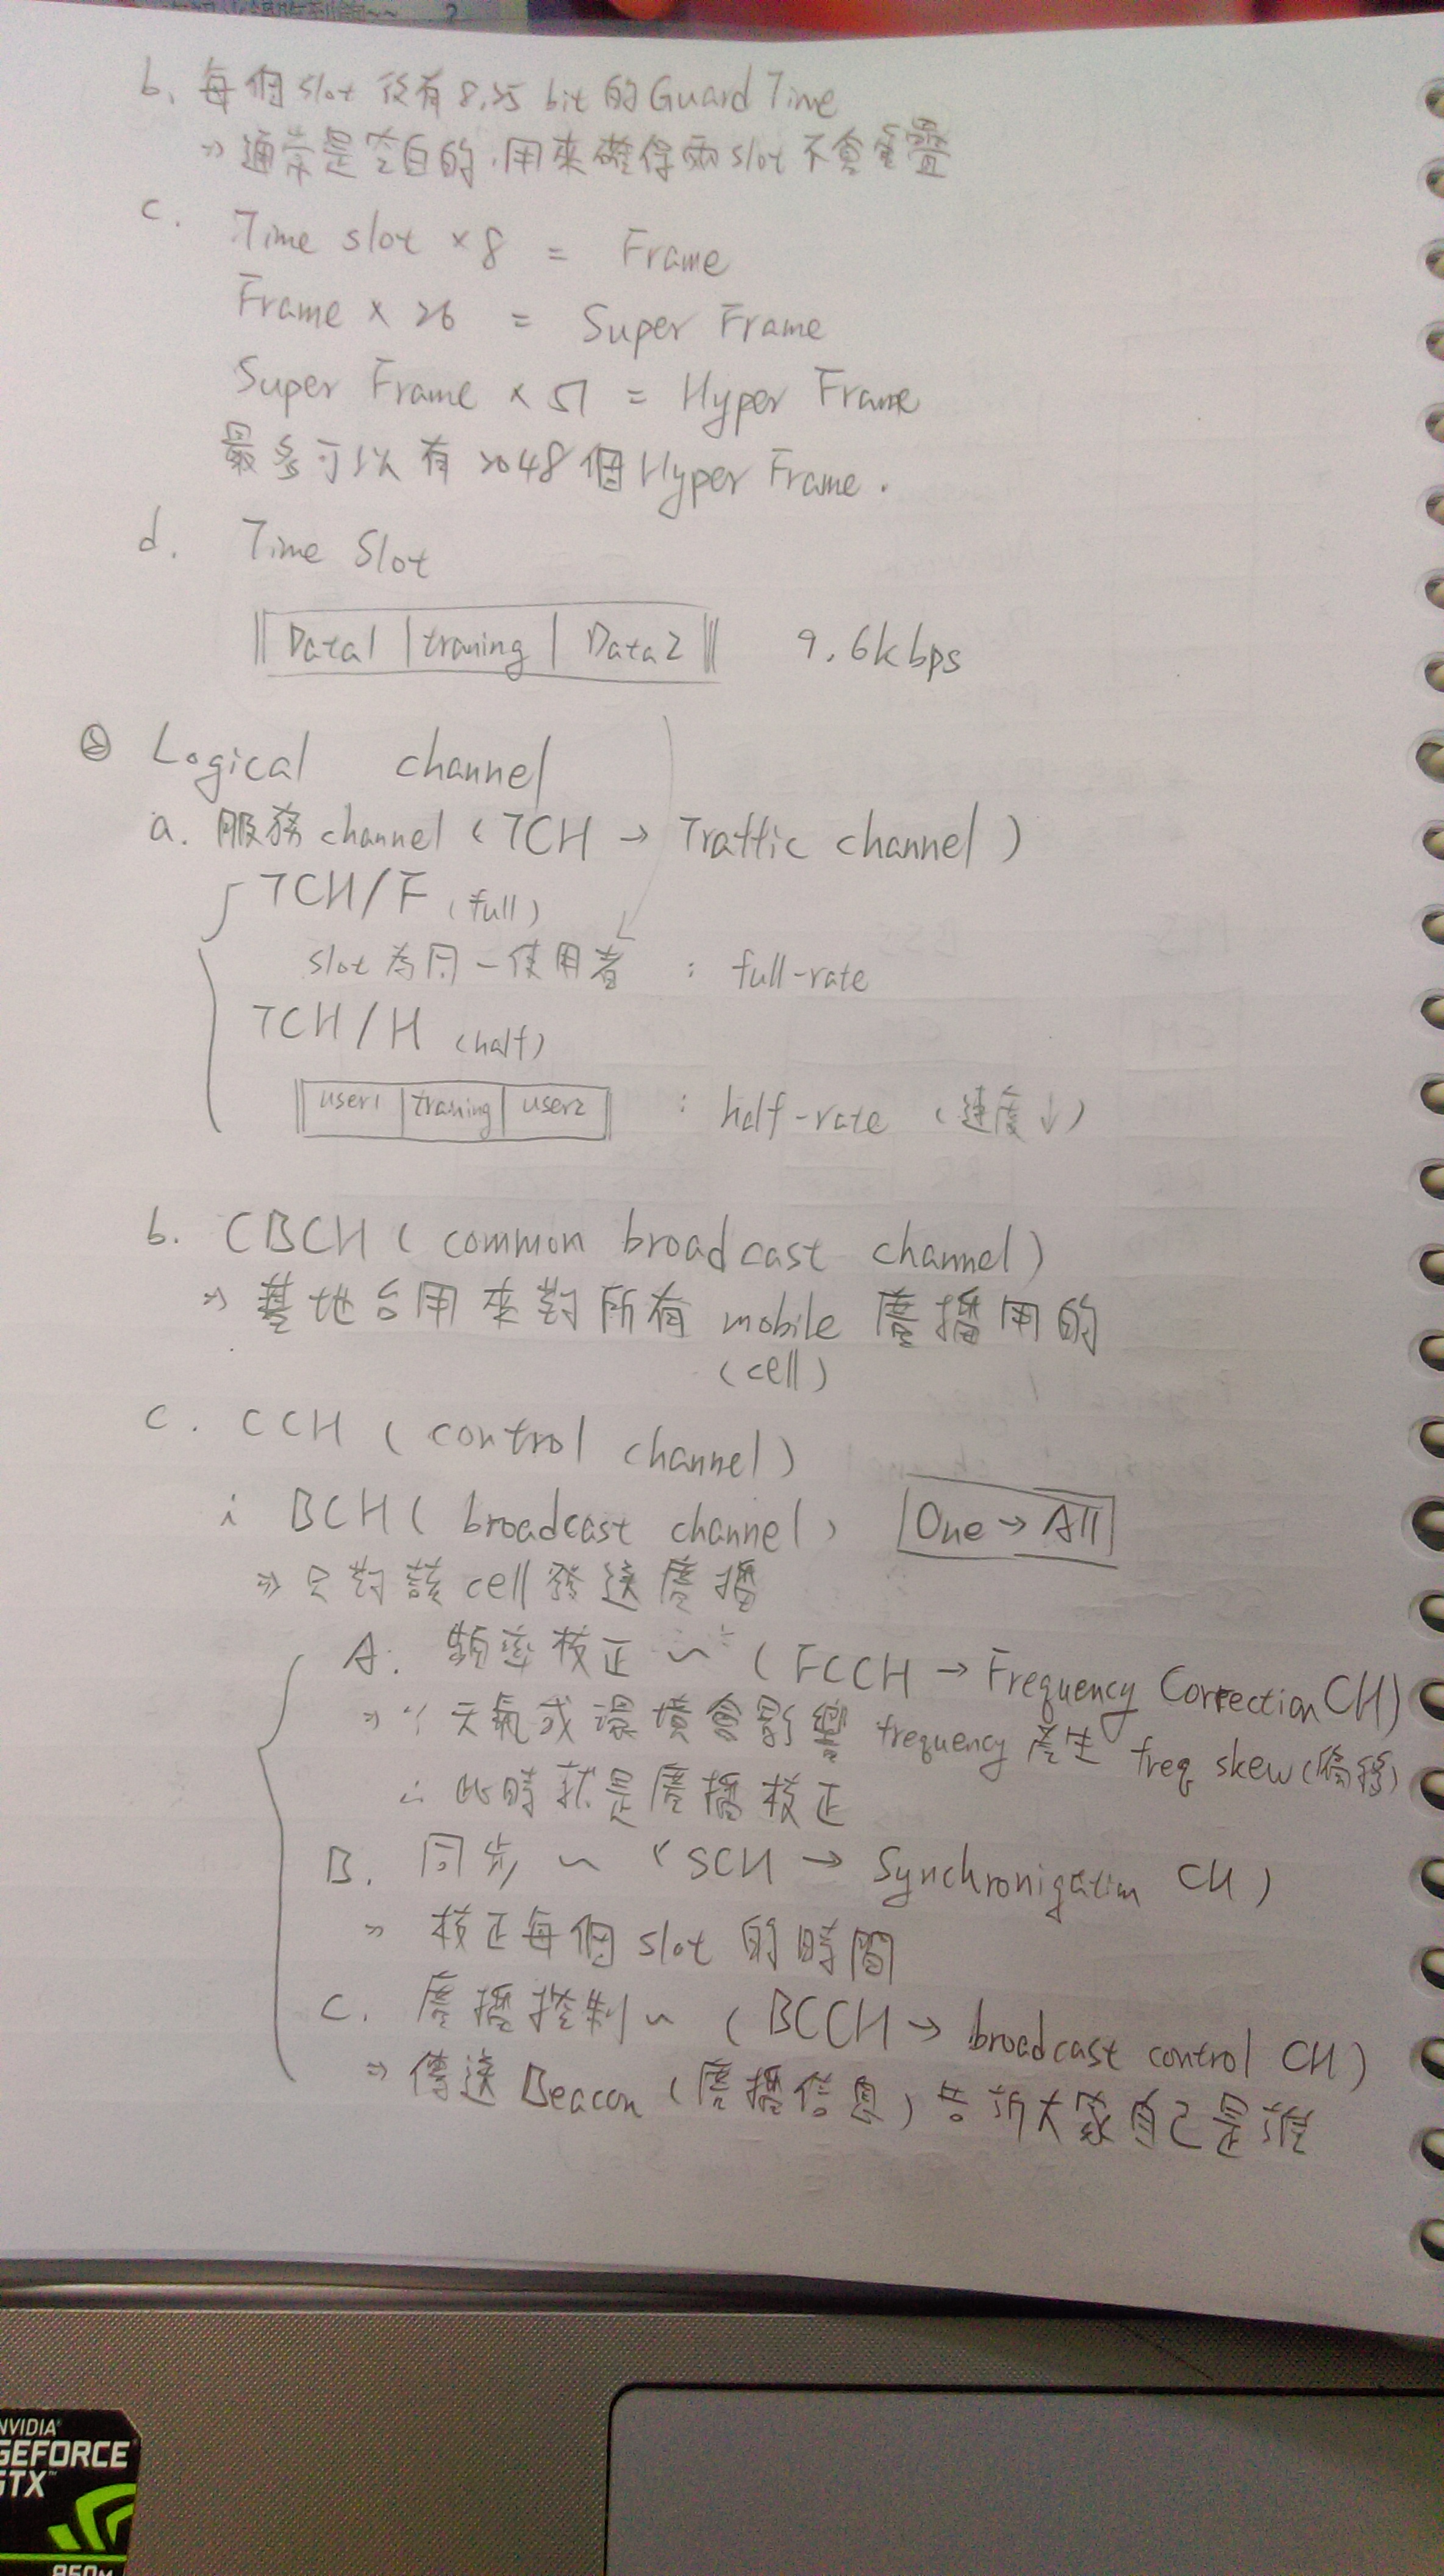 b. 每個 slot 後有 8.25 bit 的 Guard Time
⇒ 通常是空白的,用來確保兩 slot 不會重疊
c. Time slot × 8 = Frame
Frame × 26 = Super Frame
Super Frame × 51 = Hyper Frame
最多可以有 2048 個 Hyper Frame.
d. Time Slot
Data1 | traning | Data2 9.6kbps
② Logical channel
a. 服務 channel (TCH → Traffic channel)
TCH/F (full)
slot 為同一使用者 : full-rate
TCH/H (half)
user1 | traning | user2 : half-rate (速度↓)
b. CBCH (common broadcast channel)
⇒ 基地台用來對所有 mobile 廣播用的
(cell)
c. CCH (control channel)
i BCH (broadcast channel) One → All
⇒ 只對該 cell 發送廣播
A. 頻率校正 ~ (FCCH → Frequency Correction CH)
⇒ ∵ 天氣或環境會影響 frequency 產生 freq skew (偏移)
∴ 此時就是廣播校正
B. 同步 ~ (SCH → Synchronization CH)
⇒ 校正每個 slot 的時間
C. 廣播控制 ~ (BCCH → broadcast control CH)
⇒ 傳送 Beacon (廣播信息) 告訴大家自己是誰
NVIDIA
GEFORCE
GTX
850M